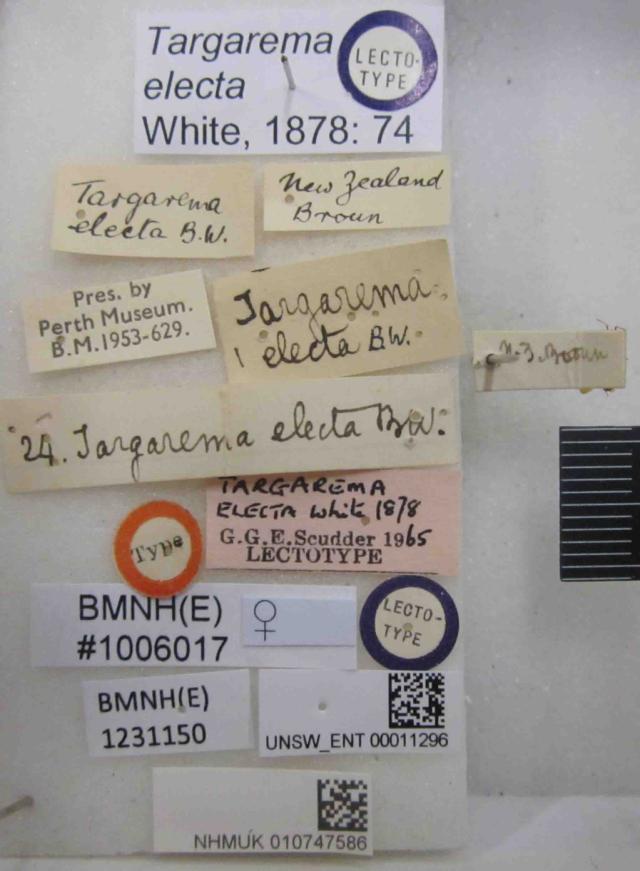 Targarema
electa
White, 1878: 74
LECTO-
TYPE
Targarema
electa B.W.
New Zealand
Broun
Pres. by
Perth Museum.
B.M.1953-629.
Targarema
electa BW.
N.Z. Broun
24. Targarema electa BW.
TARGAREMA
ELECTA White 1878
G.G.E.Scudder 1965
LECTOTYPE
Type
BMNH(E)
#1006017
♀
LECTO-
TYPE
BMNH(E)
1231150
UNSW_ENT 00011296
NHMUK 010747586